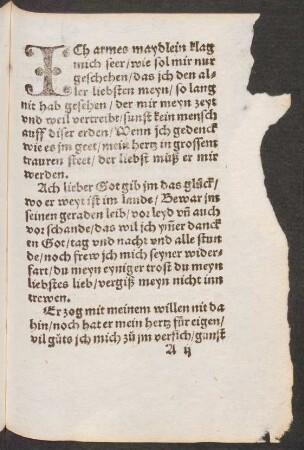 ICh armes maydlein klag
mich seer/wie sol mir nur
geschehen/das jch den al-
ler liebsten meyn/so lang
nit hab gesehen/der mir meyn zeyt
vnd weil vertreibt/sunst kein mensch
auff diser erden/Wenn jch gedenck
wie es jm geet/mein hertz in grossem
trauren steet/der liebst můß er mir
werden.
Ach lieber Got gib jm das glück/
wo er weyt ist im lande/Bewar jm
seinen geraden leib/vor leyd vñ auch
vor schande/das wil jch ym̃er danck
en Got/tag vnd nacht vnd alle stun
de/noch frew jch mich seyner wider-
fart/du meyn eyniger trost du meyn
liebstes lieb/vergiß meyn nicht inn
trewen.
Er zog mit meinem willen nit da
hin/noch hat er mein hertz für eigen/
vil gůts jch mich zů jm versich/gunst
A ij